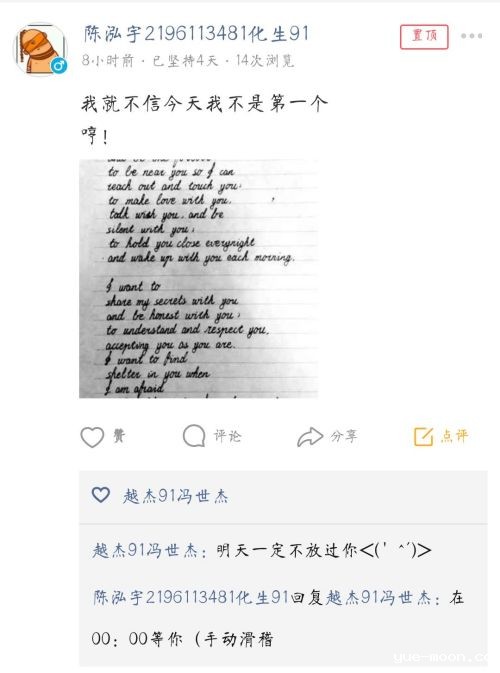 陈泓宇2196113481化生91
置顶
8小时前·已坚持4天·14次浏览
我就不信今天我不是第一个
哼!
to be near you so I can
reach out and touch you.
to make love with you.
talk with you. and be
silent with you,
to hold you close everynight
and wake up with you each morning.
I want to
share my secrets with you
and be honest with you,
to understand and respect you,
accepting you as you are.
I want to find
shelter in you when
I am afraid
赞
评论
分享
点评
越杰91冯世杰
越杰91冯世杰:明天一定不放过你<(' ^´)>
陈泓宇2196113481化生91回复越杰91冯世杰:在
00:00等你(手动滑稽
yue-moon.c